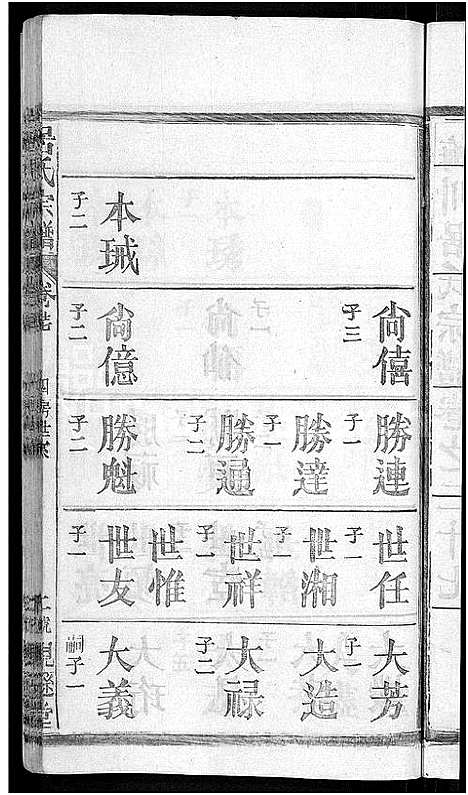 本珹 子二
尚僖 子三
尚億 子二
勝連 子一
勝達 子一
勝通 子二
勝魁 子二
世任 子一
世湘 子一
世祥 子一
世惟
世友 子一
大芳 子一
大造
大禄 子二
大義 嗣子一
呂氏宗譜
四房世系